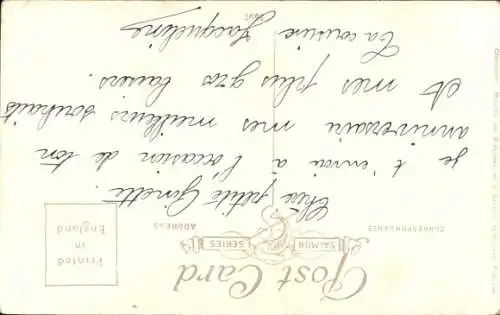 Post Card
SALMON SERIES
CORRESPONDANCE
ADDRESS
Printed
in
England
Chère petite Ginette.
je t'envoi à l'occasion de ton
anniversaire mes meilleurs souhaits
et mes plus gros baisers.
Ta cousine
Jacqueline